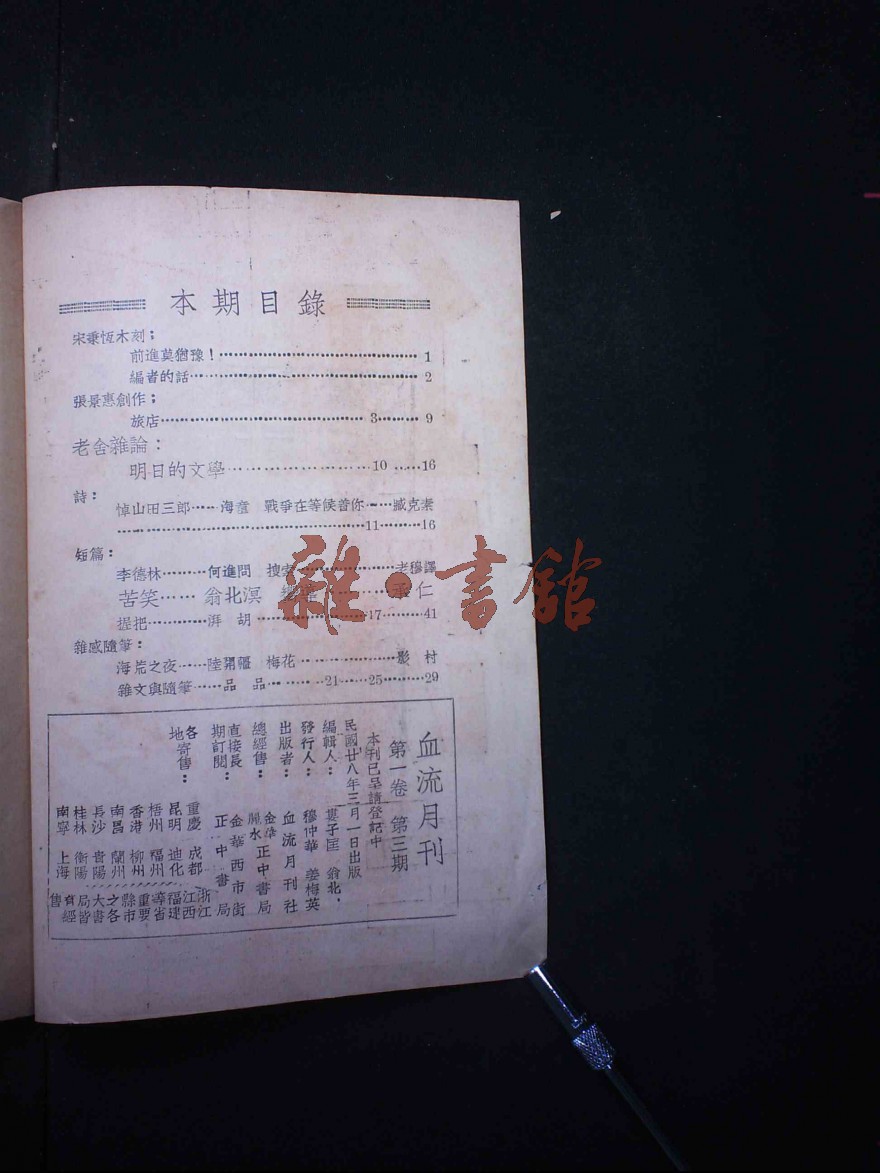 本期目錄
宋秉恆木刻；
前進莫猶豫！ 1
編者的話 2
張景惠創作；
旅店 3 9
老舍雜論：
明日的文學 10 16
詩：
悼山田三郎 海童 戰爭在等候着你 臧克素
11 16
短篇：
李德林 何進問 搜索 老穆譯
苦笑 翁北溟 承仁
握把 湃胡 17 41
雜感隨筆：
海荒之夜 陸開疆 梅花 影村
雜文與隨筆 品品 21 25 29
血流月刊
第一卷 第三期
本刊已呈請登記中
民國廿八年三月一日出版
編輯人： 婁子匡 翁北，
發行人： 穆仲華 姜梅英
出版者： 血流月刊社
總經售： 金華 麗水 正中書局
直接長期訂閱： 金華西市街正中書局
各地寄售：
重慶 成都
昆明 迪化
梧州 福州
香港 柳州
南昌 蘭州
長沙 貴陽
桂林 衡陽
南寧 上海
浙江江西福建等省重要縣市之各大書局皆有經售
雜·書館